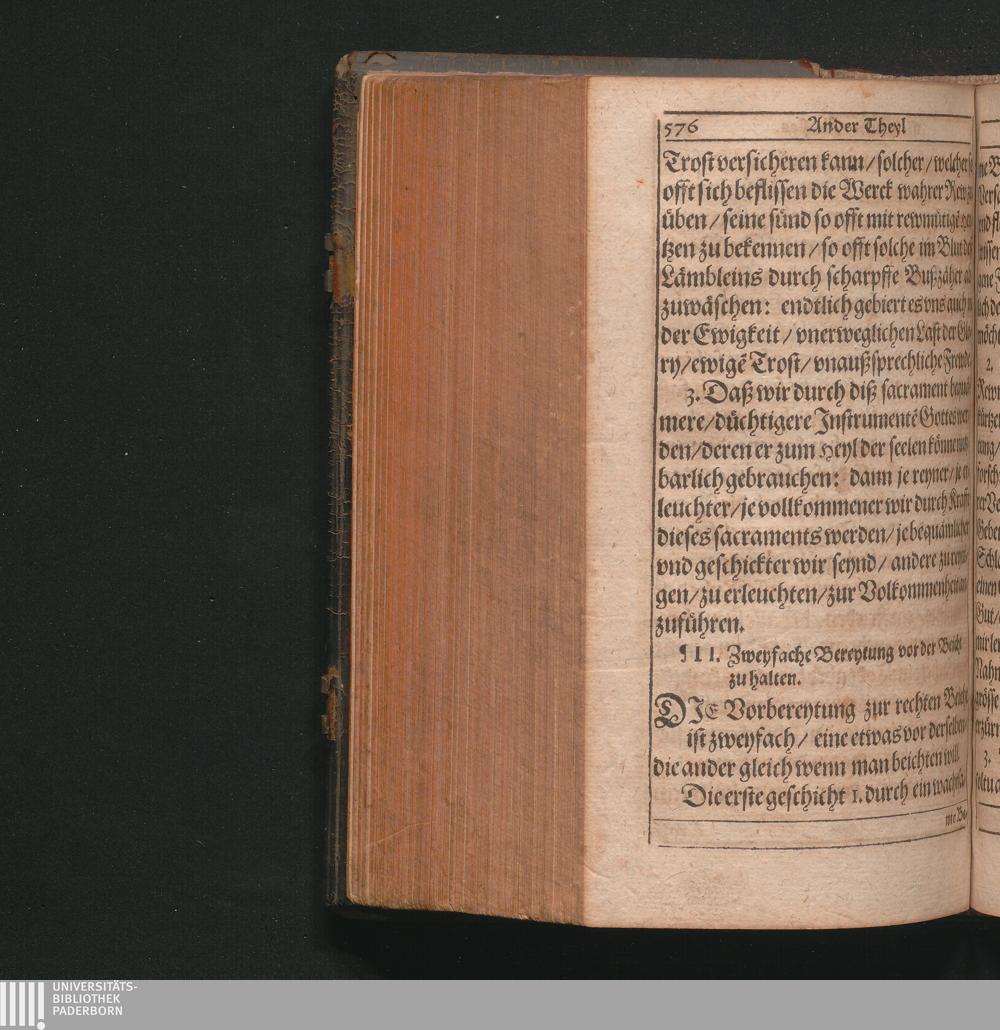 576 Ander Theyl
Trost versicheren kann/solcher/welcher
offt sich beflissen die Werck wahrer Rew
üben/seine sünd so offt mit rewmütigē
tzen zu bekennen/so offt solche im Blut
Lämbleins durch scharpffe Buß-zäher
zuwäschen: endtlich gebiert es vns auch
der Ewigkeit/vnerweglichen Last der
ry/ewigē Trost/vnaußsprechliche Frewde.
3. Daß wir durch diß sacrament
mere/düchtigere Instrumentē Gottes wer-
den/deren er zum Heyl der seelen könne
barlich gebrauchen: dann je reyner/je er-
leuchter/je vollkommener wir durch Krafft
dieses sacraments werden/je bequämlicher
vnd geschickter wir seynd/andere zu
gen/zu erleuchten/zur Volkommenheit an
zuführen.
¶ III. Zweyfache Bereytung vor der Beicht
zu halten.
DIE Vorbereytung zur rechten Beicht
ist zweyfach/eine etwas vor derselben
die ander gleich wenn man beichten will.
Die erste geschicht 1. durch ein
me Be-
2.
3.
UNIVERSITÄTS-
BIBLIOTHEK
PADERBORN